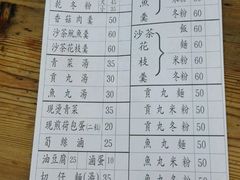 乾冬粉 50
香菇肉羹 50
沙茶魷魚羹 60
沙茶花枝羹 60
青菜湯 35
貢丸湯 30
魚丸湯 30
現燙青菜 35
現煎荷包蛋(二粒) 20
筍絲滷 50
油豆腐 25 滷蛋 10
切仔麵(湯) 35
魚羹
米粉 60
冬粉 60
沙茶花枝羹
飯 60
麵 60
米粉 60
冬粉 60
貢丸麵 50
貢丸米粉 50
貢丸冬粉 50
魚丸麵 50
魚丸米粉 50
魚丸冬粉 50